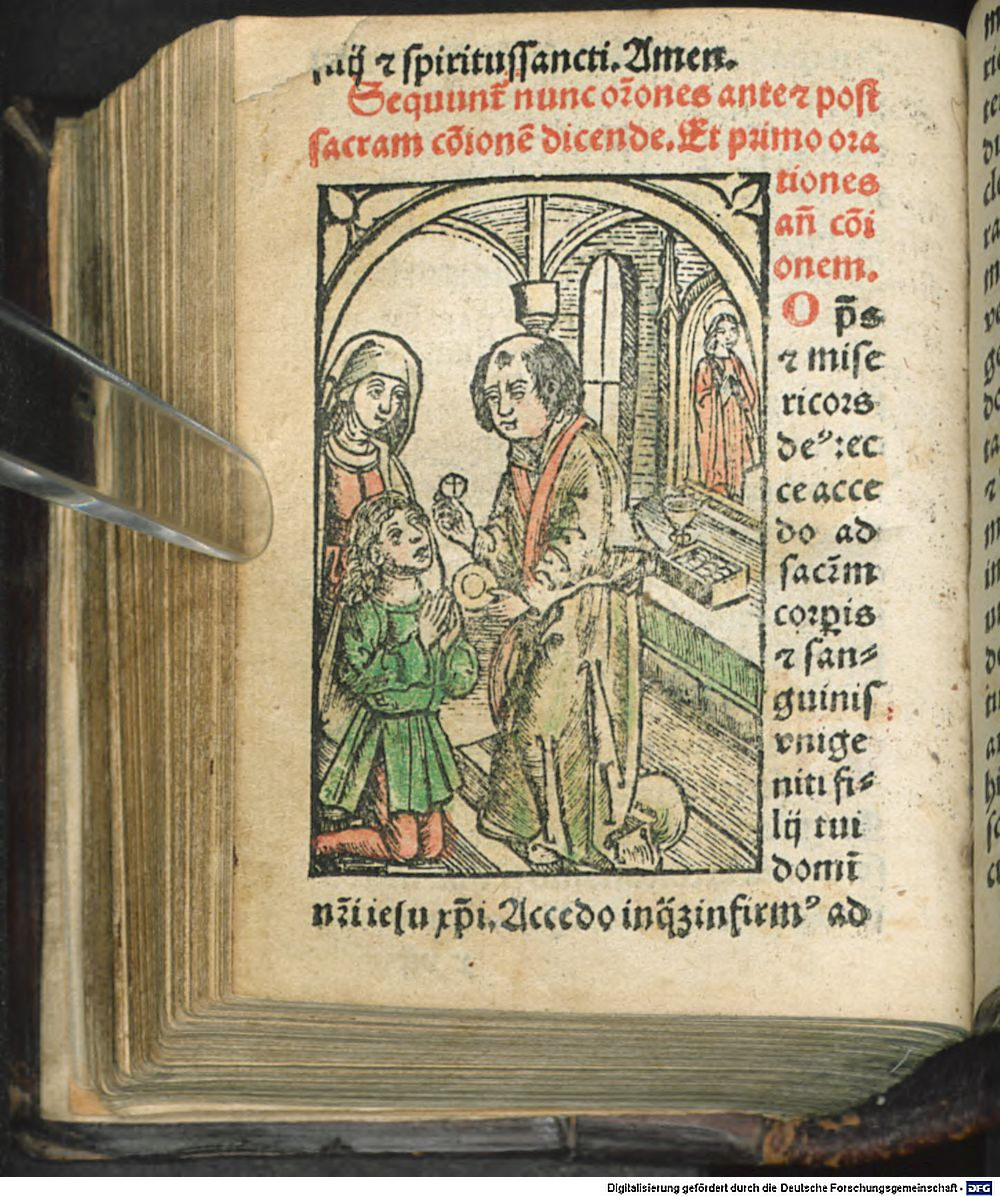 filij ⁊ spiritussancti. Amen.
Sequunt᷑ nunc or̄ones ante ⁊ post
sacram cōionē dicende. Et primo ora
tiones
an̄ cōi
onem.
O p̄s
⁊ mise
ricors
deꝰ: ec
ce acce
do ad
sacr̄m
corꝑis
⁊ san⸗
guinis
vnige
niti fi⸗
lij tui
domī
nr̄i iesu xp̄i. Accedo inq̄ꝫ infirmꝰ ad
Digitalisierung gefördert durch die Deutsche Forschungsgemeinschaft - DFG